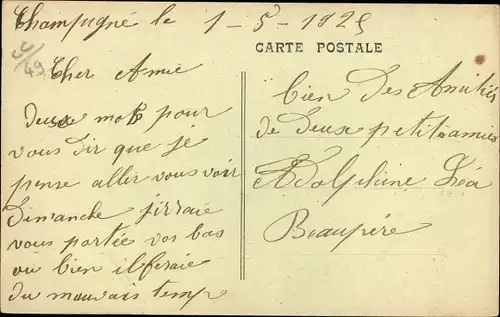 Champagné le 1-5-1925
CARTE POSTALE
Cher Amie
Deux mots pour
vous dir que je
pense aller vous voir
Dimanche jirraie
vous portée vos bas
ou bien ilferaie
du mauvais temp
bien des Amitiés
de deux petit amies
Adolphine Léa
Beaupére